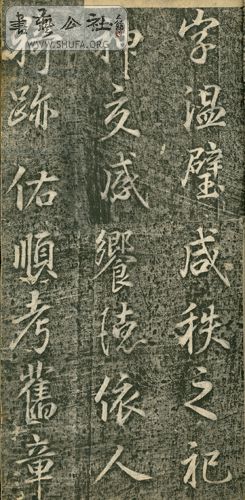 書藝公社
WWW.SHUFA.ORG
字溫璧咸秩之祀
神交感饗德依人
跡佑順考舊章